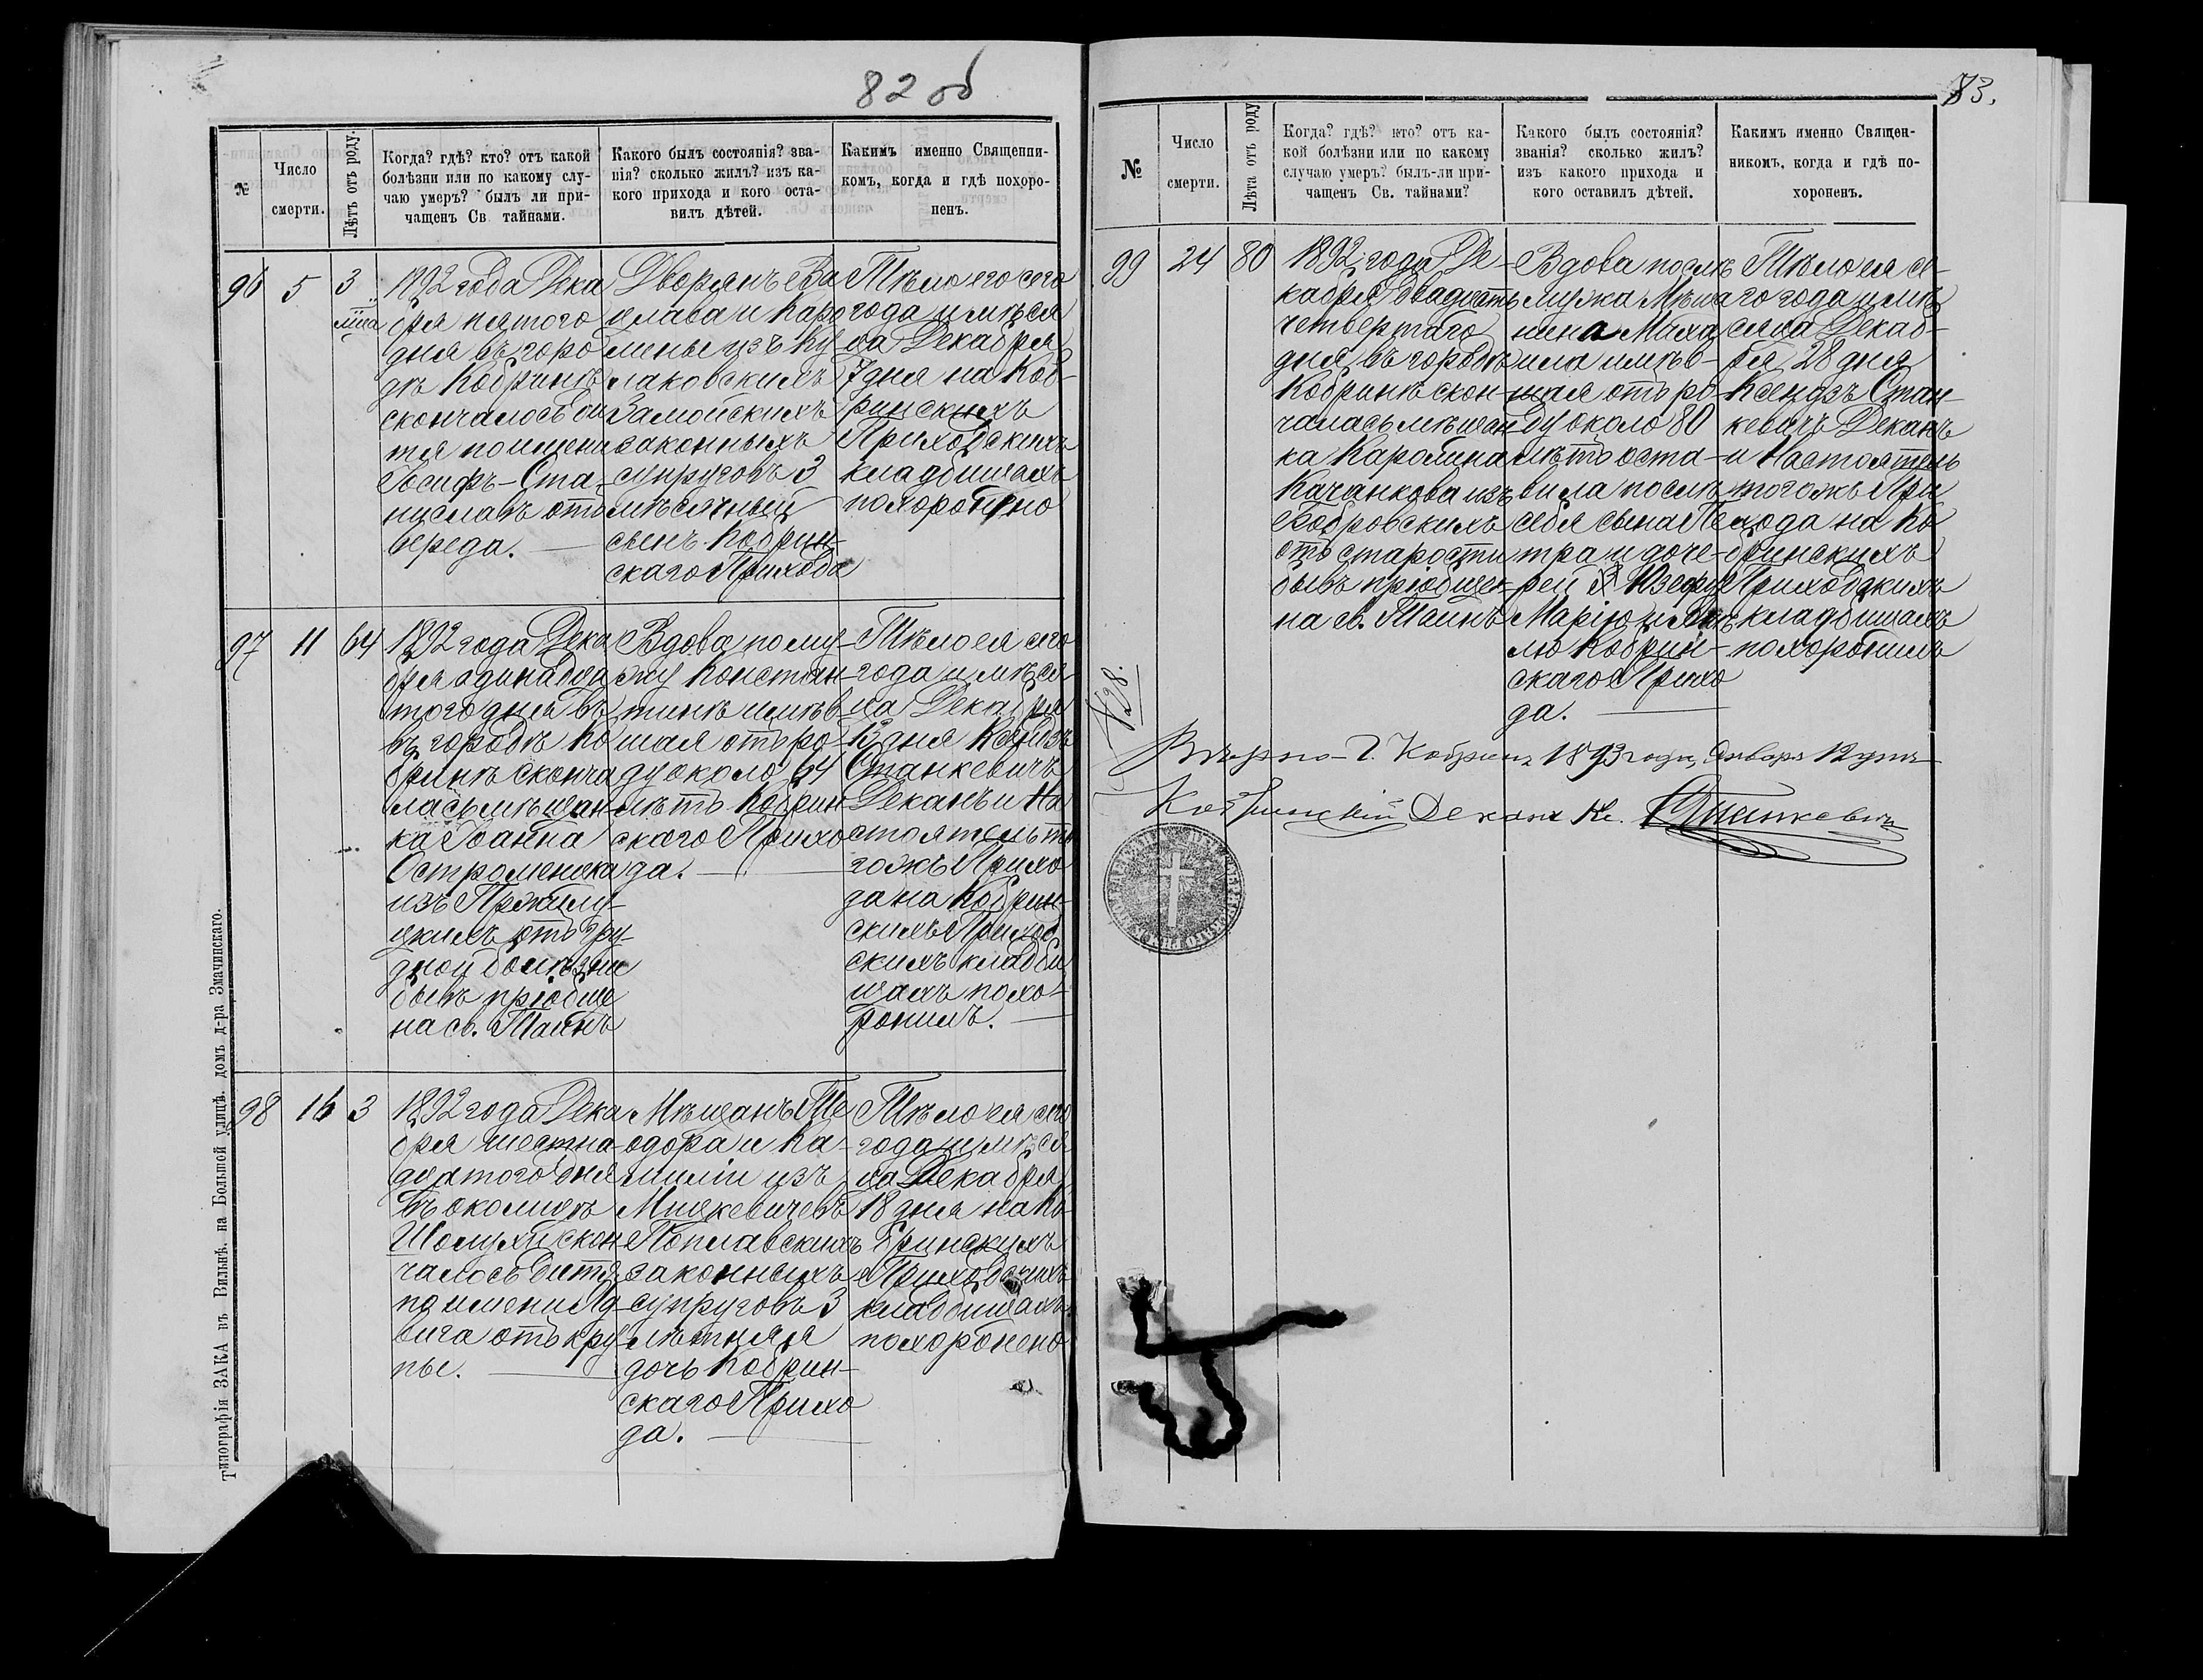 82 об
№
Число
смерти.
Лѣтъ отъ роду.
Когда? гдѣ? кто? отъ какой
болѣзни или по какому слу-
чаю умеръ? былъ ли при-
чащенъ Св. тайнами.
Какого былъ состоянія? зва-
нія? сколько жилъ? изъ ка-
кого прихода и кого оста-
вилъ дѣтей.
Какимъ именно Священни-
комъ, когда и гдѣ похоро-
ненъ.
96
5
3
мца
1892 года Дека
бря пятого
дня въ горо
дѣ Кобринѣ
скончалось ди
тя по имени
Іосифъ-Ста-
ниславъ отъ
вереда.
Дворянъ Ва
цлава и Каро
лины изъ Ку
лаковскихъ
Замойскихъ
законныхъ
супруговъ 3
мѣсячный
сынъ Кобрин-
скаго Прихода
Тѣло его сего
года и мѣся
ца Декабря
7 дня на Коб-
ринскихъ
Приходскихъ
кладбищахъ
похоронено
97
11
64
1892 года Дека
бря одинадца
того дня въ
въ городѣ Ко
бринѣ сконча
лась мѣщан
ка Іоанна
Остроменска
изъ
отъ гру-
дной болѣзни
бывъ пріобще
на св. Таинъ
Вдова по му-
жу Констан-
тинѣ имѣв
шая отъ ро-
ду около 64
лѣтъ Кобрин
скаго Прихо
да.
Тѣло ея сего
года и мѣся
ца Декабря
13 дня Ксендзъ
Станкевичъ
Деканъ и На
стоятель то
гожъ Прихо
да на Кобрин-
скихъ Приход
скихъ кладби
щахъ похо-
ронилъ.
98
16
3
1892 года Дека
бря шестна-
дцатого дня
въ околицѣ
скон
чалось дитя
по имени Яд-
вига отъ кру
пы.
Мѣщанъ Те
одора и Ка-
миліи изъ
Мицкевичевъ
Поплавскихъ
законныхъ
супруговъ 3
лѣтняя
дочь Кобрин-
скаго Прихо
да.
Тѣло ея сего
года и мѣся
ца Декабря
18 дня на Ко
бринскихъ
Приходскихъ
кладбищахъ
похоронено
Типографія ЗАКА въ Вильнѣ, на Большой улицѣ, домъ д-ра Змачинскаго.
83.
№
Число
смерти.
Лѣта отъ роду
Когда? гдѣ? кто? отъ ка-
кой болѣзни или по какому
случаю умеръ? былъ-ли при-
чащенъ Св. тайнами?
Какого былъ состоянія?
званія? сколько жилъ?
изъ какого прихода и
кого оставилъ дѣтей.
Какимъ именно Священ-
никомъ, когда и гдѣ по-
хороненъ.
99
24
80
1892 года Де-
кабря двадцать
четвертаго
дня въ городѣ
Кобринѣ скон-
чалась мѣщан
ка Каролина
Качанкова изъ
Бобровскихъ
отъ старости
бывъ пріобщен-
на св. Таинъ
Вдова послѣ
мужа Мѣща
нина Миха
ила имѣв-
шая отъ ро-
ду около 80
лѣтъ оста-
вила послѣ
себя сына Пе
тра и доче-
рей Юзефу
Марію и
лю Кобрин-
скаго Прихо
да.
Тѣло ея се-
го года и мѣ
сяца Декаб-
ря 28 дня
Ксендзъ Стан
кевичъ Деканъ
и Настоятель
тогожъ При
хода на Ко
бринскихъ
Приходскихъ
кладбищахъ
похоронилъ
Вѣрно-Г. Кобринъ 1893 года, Января 12 дня
Кобринскій Деканъ Кс. Станкевичъ